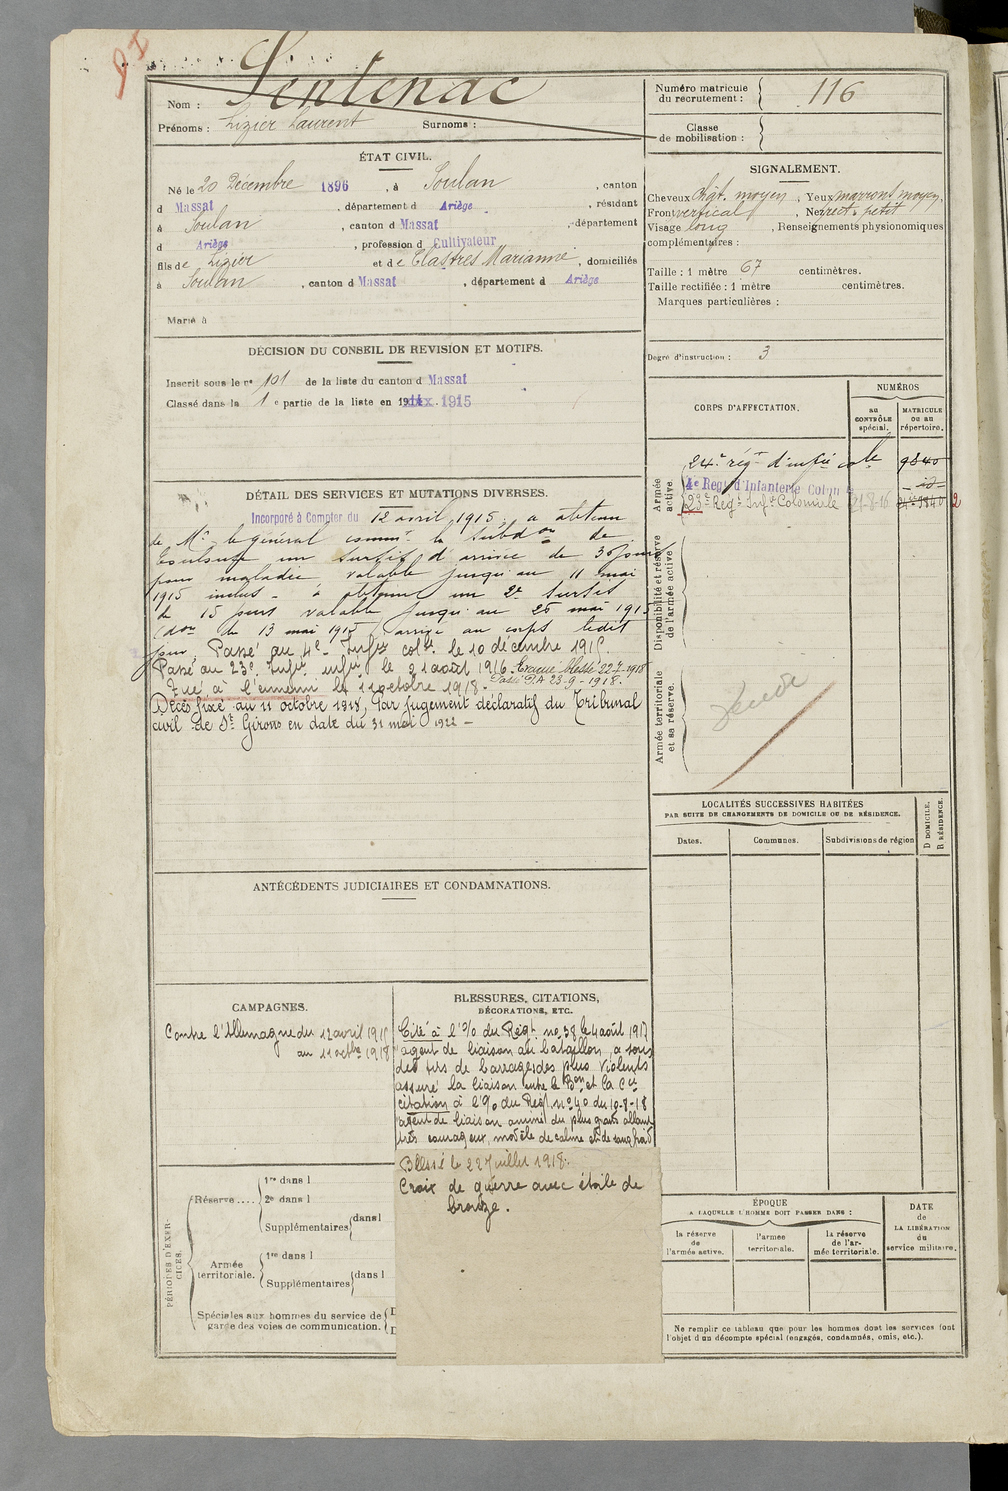 Sentenac
Nom :
Prénoms : Lizier Laurent Surnoms :
Numéro matricule du recrutement : 116
Classe de mobilisation :
ÉTAT CIVIL.
Né le 20 Décembre 1896, à Soulan, canton
d Massat, département d Ariège, résidant
à Soulan, canton d Massat, département
d Ariège, profession d Cultivateur
fils de Lizier et de Clastres Marianne, domiciliés
à Soulan, canton d Massat, département d Ariège
Marié à
SIGNALEMENT.
Cheveux chât. moyen, Yeux marrons moyen,
Front vertical, Nez rect. petit
Visage long, Renseignements physionomiques
complémentaires :
Taille : 1 mètre 67 centimètres.
Taille rectifiée : 1 mètre centimètres.
Marques particulières :
Degré d'instruction : 3
DÉCISION DU CONSEIL DE REVISION ET MOTIFS.
Inscrit sous le nº 101 de la liste du canton d Massat
Classé dans la 1e partie de la liste en 1915
CORPS D'AFFECTATION.
NUMÉROS
au CONTRÔLE spécial.
MATRICULE OU AU répertoire.
Armée active
24e régt d'infie cole 9840
4e Regt d'Infanterie Colon – id –
23e Regt Infie Coloniale 21-8-16 9840 2
Disponibilité et réserve de l'armée active
Armée territoriale et sa réserve.
DÉTAIL DES SERVICES ET MUTATIONS DIVERSES.
Incorporé à Compter du 12 avril 1915, a obtenu
de Mr le général commt la subdon de
Toulouse un sursis d'arrivée de 30 jours
pour maladie, valable jusqu'au 11 mai
1915 inclus - a obtenu un 2e sursis
de 15 jours valable jusqu'au 25 mai 1915
(don du 13 mai 1915) arrivé au corps ledit
jour. Passé au 4e Infie cole le 10 décembre 1915.
Passé au 23e le 21 août 1916. Evacué blessé 22-7-1918
Passé D.A 23-9-1918.
Tué à l'ennemi le 11 octobre 1918.
Décès fixé au 11 octobre 1918, par jugement déclaratif du Tribunal
civil de St Girons en date du 31 mai 1922 –
LOCALITÉS SUCCESSIVES HABITÉES
PAR SUITE DE CHANGEMENTS DE DOMICILE OU DE RÉSIDENCE.
Dates.
Communes.
Subdivisions de région
D DOMICILE.
R RÉSIDENCE.
ANTÉCÉDENTS JUDICIAIRES ET CONDAMNATIONS.
CAMPAGNES.
Contre l'Allemagne du 12 avril 1915
au 11 octbre 1918
BLESSURES, CITATIONS,
DÉCORATIONS, ETC.
Cité à l'% du Régt no 38 le 4 août 1917
"agent de liaison au bataillon, a sous
des tirs de barrages des plus violents
assuré la liaison entre le Bon et la Cie
citation à l'% du Regt no 40 du 10-8-18
"agent de liaison animé du plus grand allant
très courageux, modèle de calme et de sang froid"
Blessé le 22 Juillet 1918.
Croix de guerre avec étoile de
bronze.
PÉRIODES D'EXERCICES.
Réserve....
1re dans l
2e dans l
Supplémentaires dans l
Armée territoriale.
1re dans l
Supplémentaires dans l
Spéciales aux hommes du service de
garde des voies de communication.
ÉPOQUE
A LAQUELLE L'HOMME DOIT PASSER DANS :
la réserve de l'armée active.
l'armée territoriale.
la réserve de l'armée territoriale.
DATE de LA LIBÉRATION du service militaire.
Ne remplir ce tableau que pour les hommes dont les services font
l'objet d'un décompte spécial (engagés, condamnés, omis, etc.).